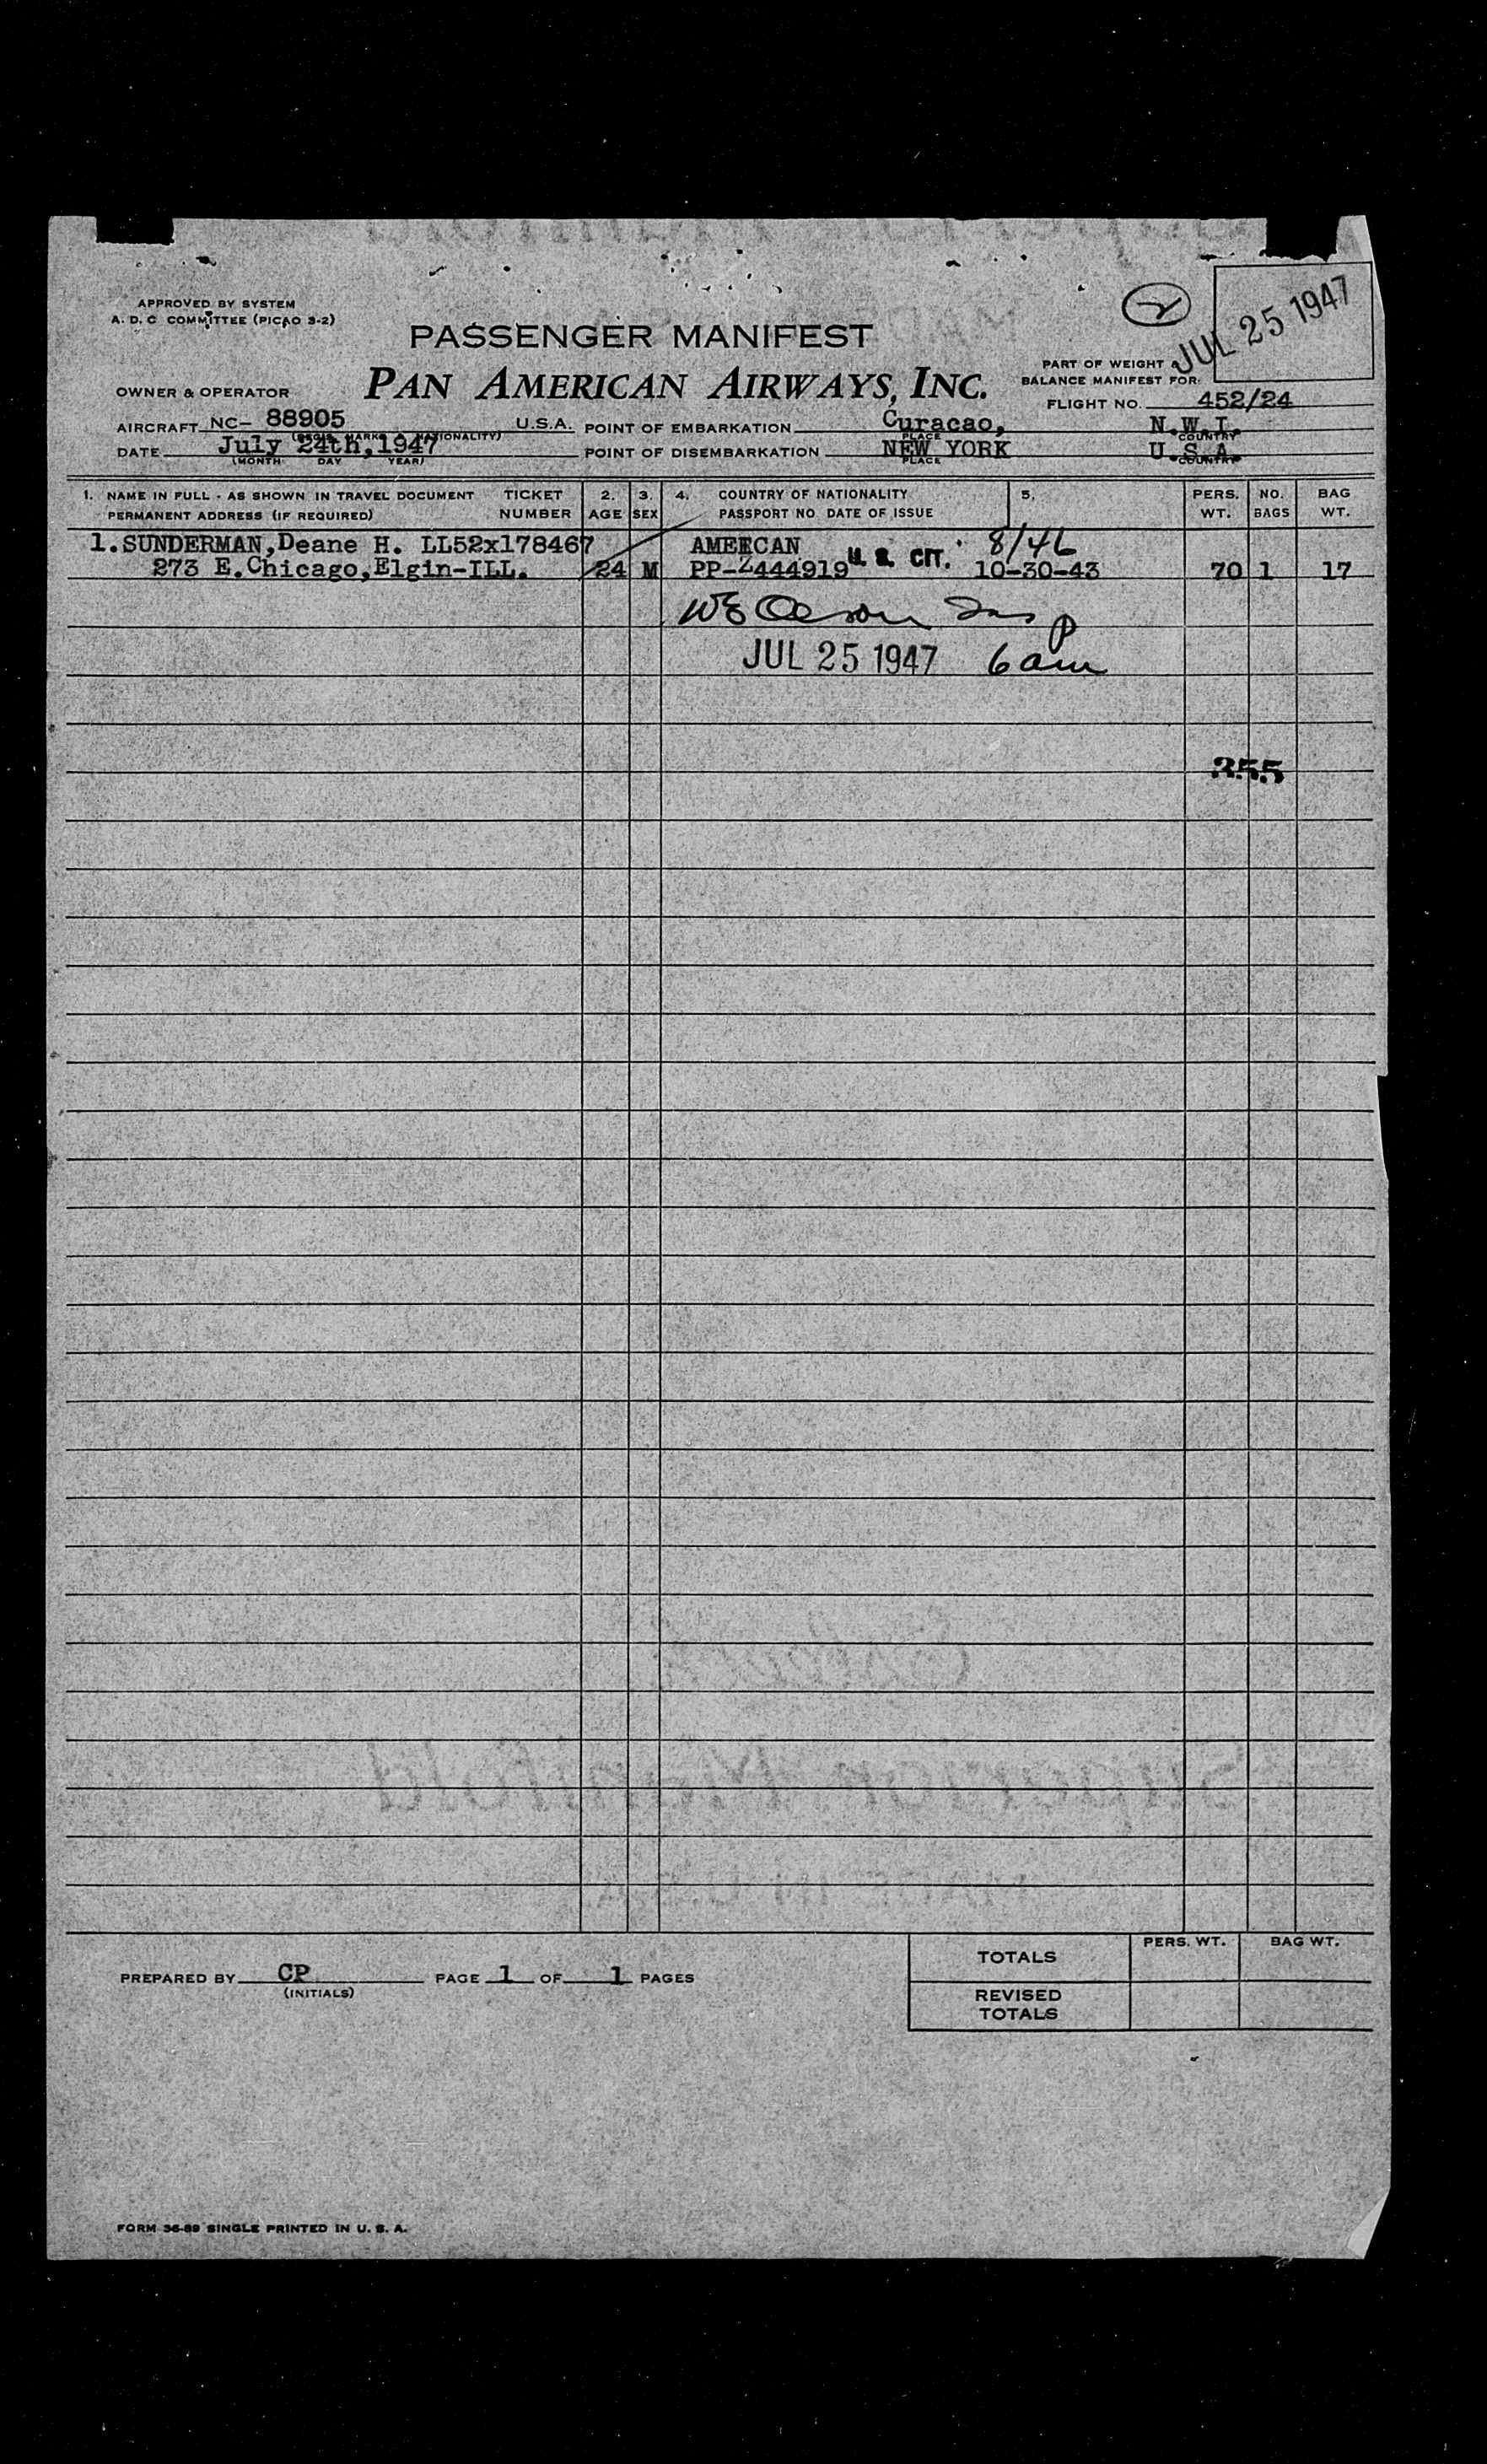 APPROVED BY SYSTEM
A. D. C COMMITTEE (PICAO 3-2)
2
JUL 25 1947
PASSENGER MANIFEST
PAN AMERICAN AIRWAYS, INC.
PART OF WEIGHT &
BALANCE MANIFEST FOR:
OWNER & OPERATOR
FLIGHT NO. 452/24
AIRCRAFT NC- 88905 U.S.A. POINT OF EMBARKATION Curacao, N.W.I.
(REGIS. MARKS & NATIONALITY) PLACE COUNTRY
DATE July 24th,1947 POINT OF DISEMBARKATION NEW YORK U.S.A.
(MONTH DAY YEAR) PLACE COUNTRY
1. NAME IN FULL - AS SHOWN IN TRAVEL DOCUMENT TICKET 2. 3. 4. COUNTRY OF NATIONALITY 5. PERS. NO. BAG
PERMANENT ADDRESS (IF REQUIRED) NUMBER AGE SEX PASSPORT NO DATE OF ISSUE WT. BAGS WT.
1.SUNDERMAN,Deane H. LL52x178467 8/46
273 E.Chicago,Elgin-ILL. 24 M U. S. CIT. 10-30-43 70 1 17
JUL 25 1947 6 am
355
Superior Manifold
MADE IN U.S.A.
TOTALS PERS. WT. BAG WT.
PREPARED BY CP PAGE 1 OF 1 PAGES
(INITIALS)
REVISED
TOTALS
FORM 36-89 SINGLE PRINTED IN U. S. A.